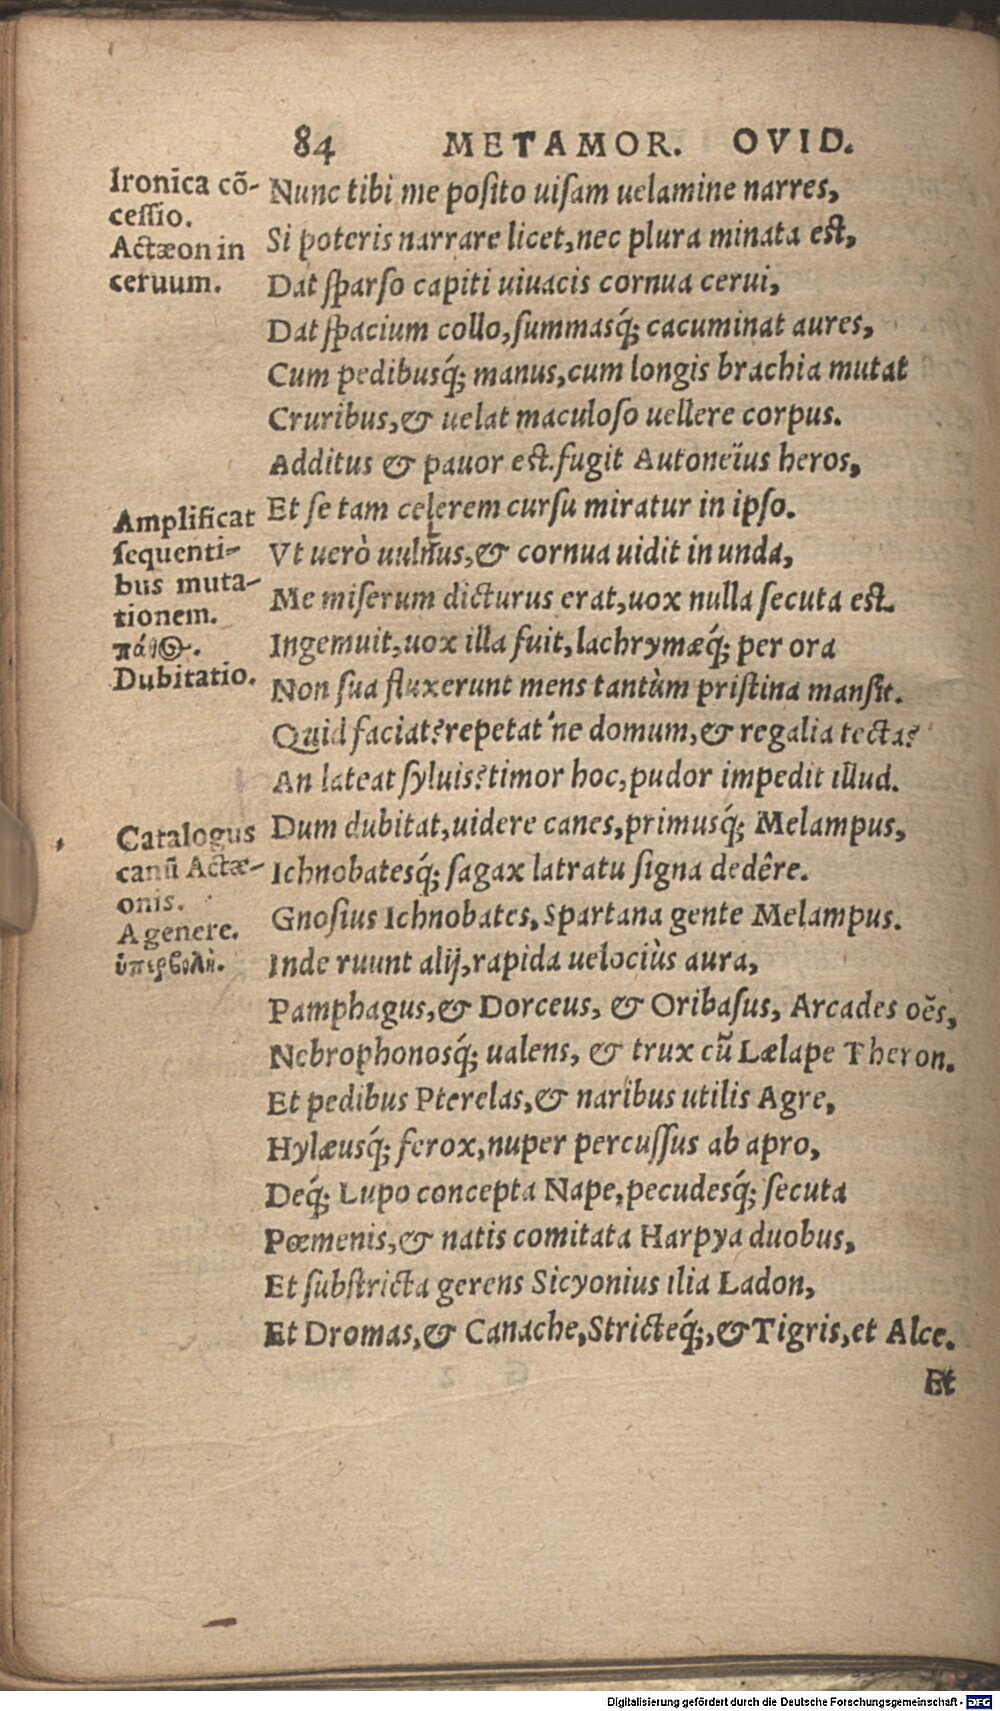 84 METAMOR. OVID.
Ironica cõ-
cessio.
Actæon in
ceruum.
Nunc tibi me posito uisam uelamine narres,
Si poteris narrare licet, nec plura minata est,
Dat sparso capiti uiuacis cornua cerui,
Dat spacium collo, summasq́; cacuminat aures,
Cum pedibusq́; manus, cum longis brachia mutat
Cruribus, & uelat maculoso uellere corpus.
Additus & pauor est. fugit Autoneïus heros,
Et se tam celerem cursu miratur in ipso.
Amplificat
sequenti-
bus muta-
tionem.
πάθος.
Dubitatio.
Vt uerò uultus, & cornua uidit in unda,
Me miserum dicturus erat, uox nulla secuta est.
Ingemuit, uox illa fuit, lachrymæq́; per ora
Non sua fluxerunt mens tantùm pristina mansit.
Quid faciat? repetat'ne domum, & regalia tecta?
An lateat syluis? timor hoc, pudor impedit illud.
Catalogus
canũ Actæ-
onis.
A genere.
ὑπερβολή.
Dum dubitat, uidere canes, primusq́; Melampus,
Ichnobatesq́; sagax latratu signa dedêre.
Gnosius Ichnobates, Spartana gente Melampus.
Inde ruunt alij, rapida uelociùs aura,
Pamphagus, & Dorceus, & Oribasus, Arcades oẽs,
Nebrophonosq́; ualens, & trux cũ Lælape Theron.
Et pedibus Pterelas, & naribus utilis Agre,
Hylæusq́; ferox, nuper percussus ab apro,
Deq́; Lupo concepta Nape, pecudesq́; secuta
Pœmenis, & natis comitata Harpya duobus,
Et substricta gerens Sicyonius ilia Ladon,
Et Dromas, & Canache, Stricteq́;, & Tigris, et Alce.
Et
Digitalisierung gefördert durch die Deutsche Forschungsgemeinschaft - DFG